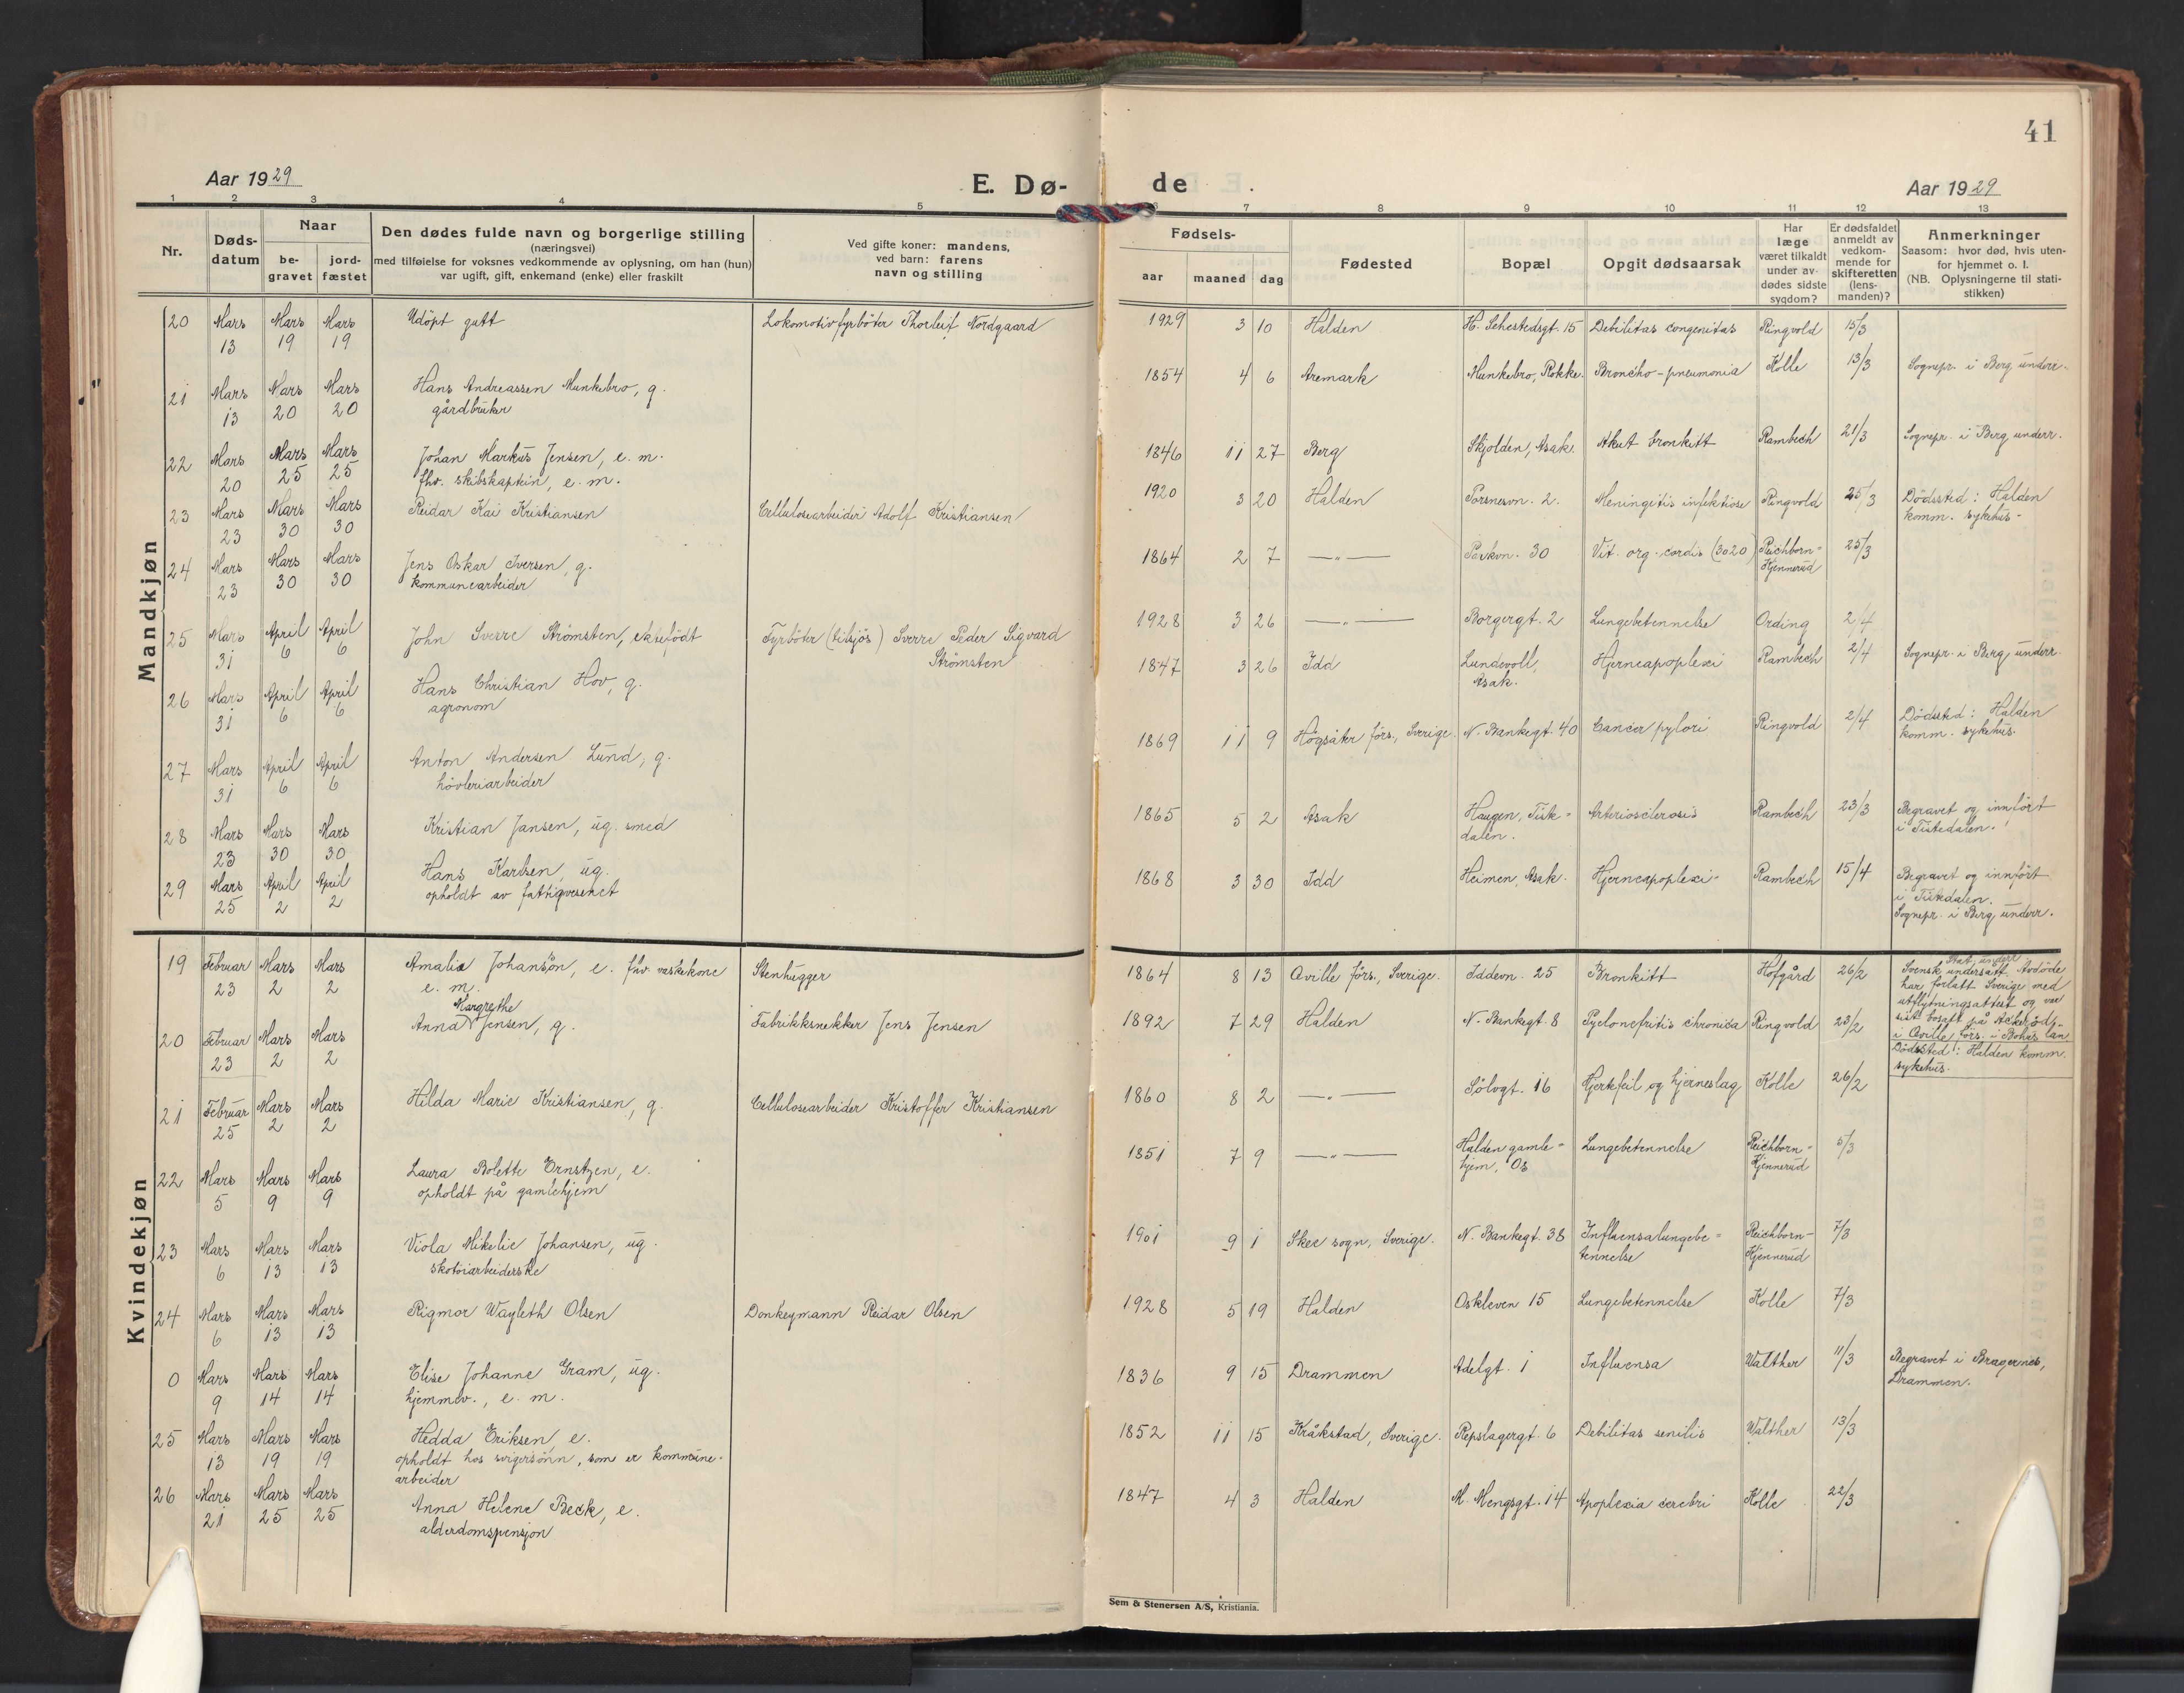 41
Aar 1929
E. Dø-
de
Aar 1929
1 2 3 4 5 6 7 8 9 10 11 12 13
Nr.
Døds-
datum
Naar
be-
gravet
jord-
fæstet
Den dødes fulde navn og borgerlige stilling
(næringsvei)
med tilføielse for voksnes vedkommende av oplysning, om han (hun)
var ugift, gift, enkemand (enke) eller fraskilt
Ved gifte koner: mandens,
ved barn: farens
navn og stilling
Fødsels-
aar maaned dag
Fødested
Bopæl
Opgit dødsaarsak
Har
læge
været tilkaldt
under av-
dødes sidste
sygdom?
Er dødsfaldet
anmeldt av
vedkom-
mende for
skifteretten
(lens-
manden)?
Anmerkninger
Saasom: hvor død, hvis uten-
for hjemmet o. l.
(NB. Oplysningerne til stati-
stikken)
Mandkjøn
20 Mars 13 Mars 19 Mars 19 Udöpt gutt Lokomotivfyrböter Thorleif Nordgaard 1929 3 10 Halden H. Sehestedsgt. 15 Debilitas congenitas Ringvold 15/3
21 Mars 13 Mars 20 Mars 20 Hans Andreassen Munkebro, g. 1854 4 6 Aremark Munkebro, Rokke. Broncho-pneumonia Kolle 13/3 Sognepr. i Berg underr.
gårdbruker
22 Mars 20 Mars 25 Mars 25 Johan Markus Jensen, e. m. 1846 11 27 Berg Skjolden, Asak. Akut bronkitt Rambech 21/3 Sognepr. i Berg underr.
fhv. skibskaptein, e. m.
23 Mars 23 Mars 30 Mars 30 Reidar Kai Kristiansen Cellulosearbeider Adolf Kristiansen 1920 3 20 Halden Torsnesvn. 2. Meningitis infektiöse Ringvold 25/3 Dödssted: Halden
komm. sykehus-
24 Mars 23 Mars 30 Mars 30 Jens Oskar Iversen, g. 1864 2 7 —"— Parkvn. 30 Vit. org. cordis (3020) Reichborn= 25/3
kommunearbeider Kjennerud
25 Mars 31 April 6 April 6 John Sverre Strömsten, ektefödt Fyrböter (tilsjös) Sverre Peder Sigvard 1928 3 26 —"— Borgergt. 2 Lungebetennelse Ording 2/4
Strömsten
26 Mars 31 April 6 April 6 Hans Christian Hov, g. 1847 3 26 Idd Lundevoll, Hjerneapoplexi Rambech 2/4 Sognepr. i Berg, underr.
agronom Asak.
27 Mars 31 April 6 April 6 Anton Andersen Lund, g. 1869 11 9 Högsäter förs., Sverige. N. Bankegt. 40 Cancer pylori Ringvold 2/4 Dödssted: Halden
hövleriarbeider komm. sykehus.
28 Mars 23 Mars 30 Mars 30 Kristian Jansen, ug. smed 1865 5 2 Asak Haugen, Tiste= Arteriosclerosis Rambech 23/3 Begravet og innfört
dalen. i Tistedalen.
29 Mars 25 April 2 April 2 Hans Karlsen, ug. 1868 3 30 Idd Heimen, Asak. Hjerneapoplexi- Rambech 15/4 Begravet og innfört
opholdt av fattigvesenet i Tistedalen.
Sognepr. i Berg, underr.
Kvindekjøn
19 Februar 23 Mars 2 Mars 2 Amalia Johansön, e. fhv. vaskekone Stenhugger 1864 8 13 Qville förs., Sverige. Iddevn. 25 Bronkitt Hofgård 26/2 Svensk undersått. Avdöde
e. m. har forlatt Sverige med
utflytningsattest og var
sist bosatt på
i Qville förs. i Bohus län
20 Februar 23 Mars 2 Mars 2 Anna Margrethe Jensen, g. Fabrikksnekker Jens Jensen 1892 7 29 Halden N. Bankegt. 8 Pyelonefritis chronica Ringvold 23/2 Dödssted: Halden komm.
sykehus.
21 Februar 25 Mars 2 Mars 2 Hilda Marie Kristiansen, g. Cellulosearbeider Kristoffer Kristiansen 1860 8 2 —"— Sölvgt. 16 Hjertefeil og hjerneslag Kolle 26/2
22 Mars 5 Mars 9 Mars 9 Laura Bolette Ernstzen, e. 1851 7 9 —"— Halden gamle= Lungebetennelse Reichborn= 5/3
opholdt på gamlehjem hjem, Os Kjennerud
23 Mars 6 Mars 13 Mars 13 Viola Mikelie Johansen, ug. 1901 9 1 Skee sogn, Sverige. N. Bankegt. 38 Influensalungebe= Reichborn- 7/3
skotöiarbeiderske tennelse Kjennerud
24 Mars 6 Mars 13 Mars 13 Rigmor Wayleth Olsen Donkeymann Reidar Olsen 1928 5 19 Halden Oskleven 15 Lungebetennelse Kolle 7/3
0 Mars 9 Mars 14 Mars 14 Elise Johanne Gram, ug. 1836 9 15 Drammen Adelgt. 1 Influensa Walther 11/3 Begravet i Bragernes,
hjemmev., e. m. Drammen.
25 Mars 13 Mars 19 Mars 19 Hedda Eriksen, e. 1852 11 15 Kråkstad, Sverige. Repslagergt. 6 Debilitas senilis Walther 13/3
opholdt hos svigersönn, som er kommune-
arbeider
26 Mars 21 Mars 25 Mars 25 Anna Helene Beck, e. 1847 4 3 Halden M. Mengsgt. 14 Apoplexia cerebri Kolle 22/3
alderdomspensjon
Sem & Stenersen A/S, Kristiania.